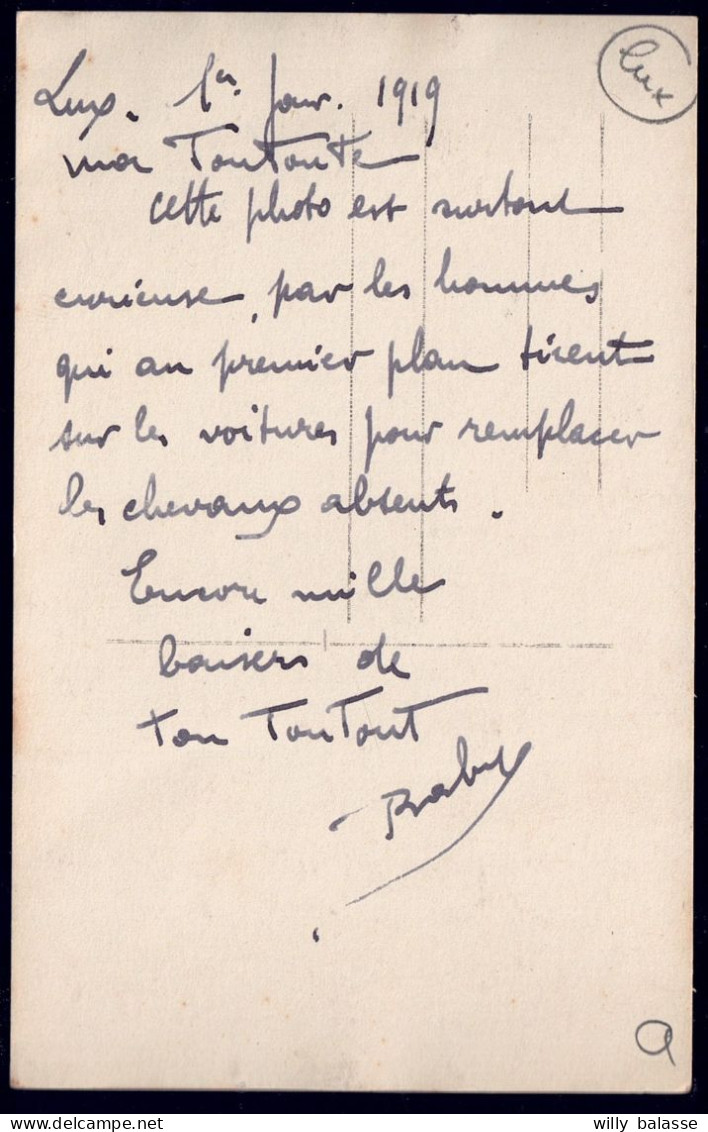 Lux. 1er Janv. 1919
Lux
ma Toutoute
cette photo est surtout
curieuse, par les hommes
qui au premier plan tirent
sur les voitures pour remplacer
les chevaux absents.
Encore mille
baisers de
ton Toutout
a
willy balasse